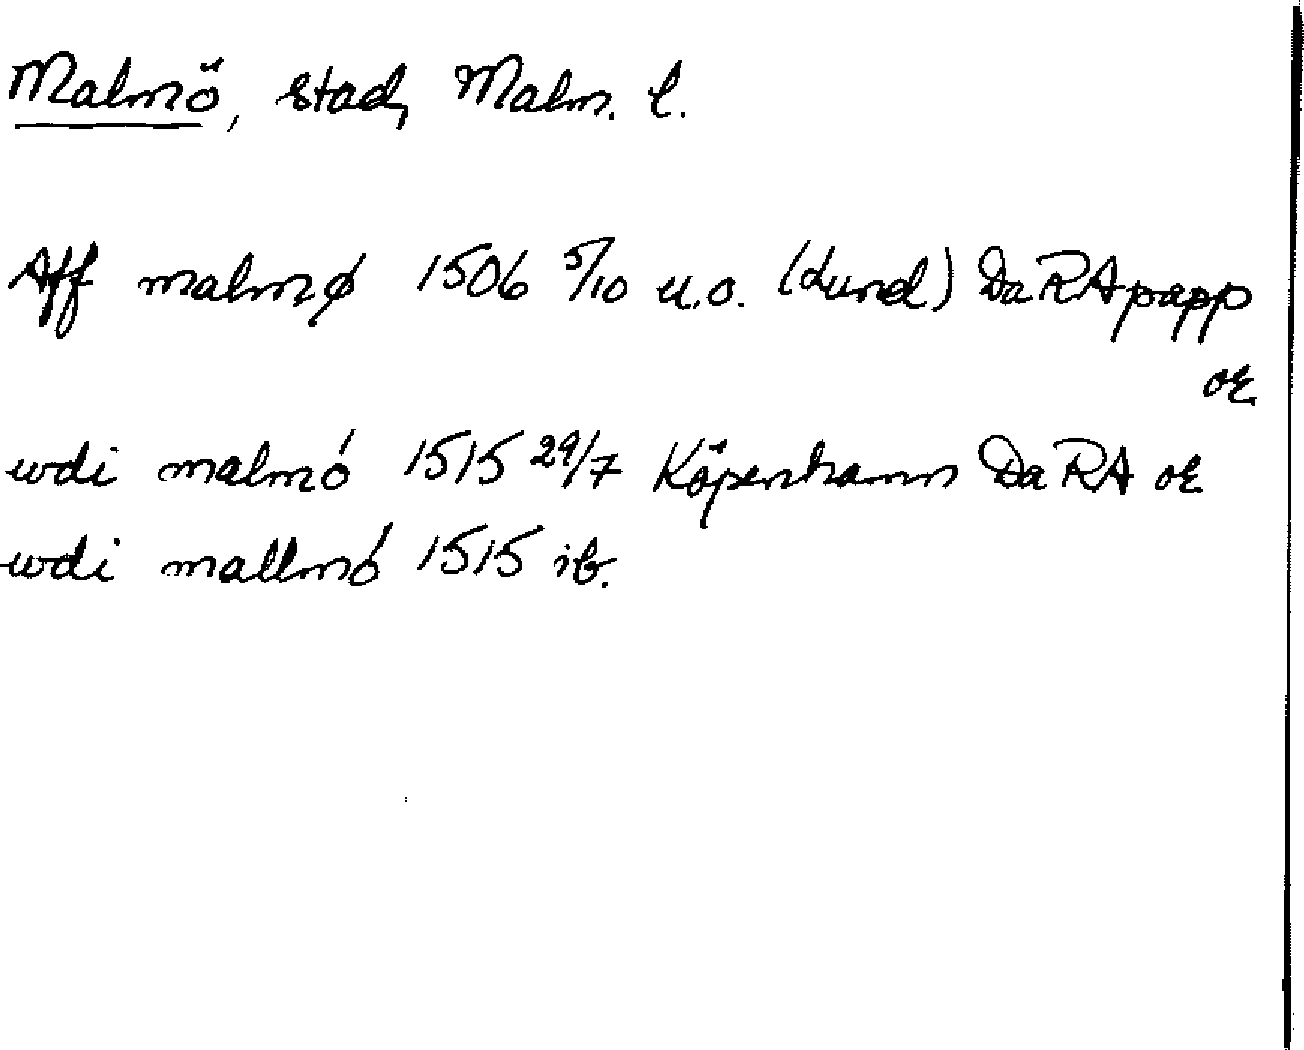 Malmö, stad, Malm. l.
Aff malmø 1506 5/10 u.o. (Lund) DaRApapp
oE
wdi malmó 1515 29/7 Köpenhamn DaRA oE
wdi mallmó 1515 ib.